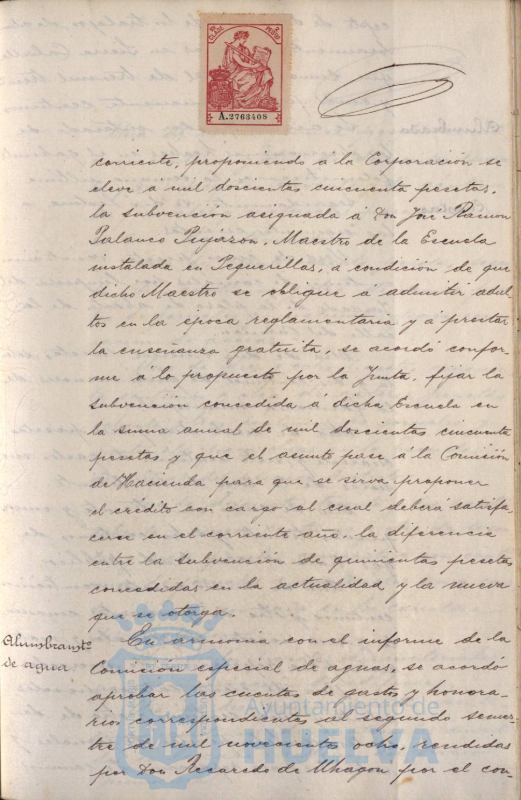 CLASE 9ª
1 PESETA
A.2763408
corriente, proponiendo á la Corporación se
eleve á mil doscientas cincuenta pesetas,
la subvención asignada á Don José Ramon
Palanco Pujazon, Maestro de la Escuela
instalada en Peguerillas, á condición de que
dicho Maestro se obligue á admitir adul-
tos en la época reglamentaria y á prestar
la enseñanza gratuita, se acordó confor-
me á lo propuesto por la Junta, fijar la
subvención concedida á dicha Escuela en
la suma anual de mil doscientas cincuenta
pesetas y que el asunto pase á la Comisión
de Hacienda para que se sirva proponer
el crédito con cargo al cual deberá satisfa-
cerse en el corriente año, la diferencia
entre la subvención de quinientas pesetas
concedidas en la actualidad y la nueva
que se otorga.
Alumbramtº
de agua
En armonia con el informe de la
Comisión especial de aguas, se acordó
aprobar las cuentas de gastos y honora-
rios correspondientes al segundo semes-
tre de mil novecientos ocho, rendidas
por Don Recaredo de Uhagon por el con-
Ayuntamiento de
HUELVA